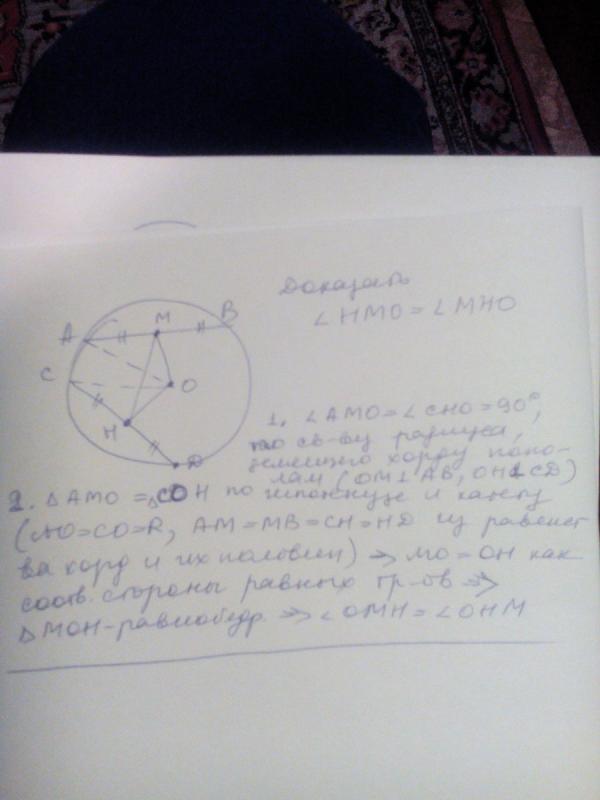 Доказать
∠HMO = ∠MHO
A
M
B
C
O
H
D
1. ∠AMO = ∠CHO = 90°,
по св-ву радиуса,
делящего хорду попо-
лам (OM⊥AB, OH⊥CD)
2. △AMO = △COH по гипотенузе и катету
(AO=CO=R, AM=MB=CH=HD из равенст
ва хорд и их половин) => MO=OH как
соотв. стороны равных тр-ов =>
△MOH-равнобедр. => ∠OMH = ∠OHM